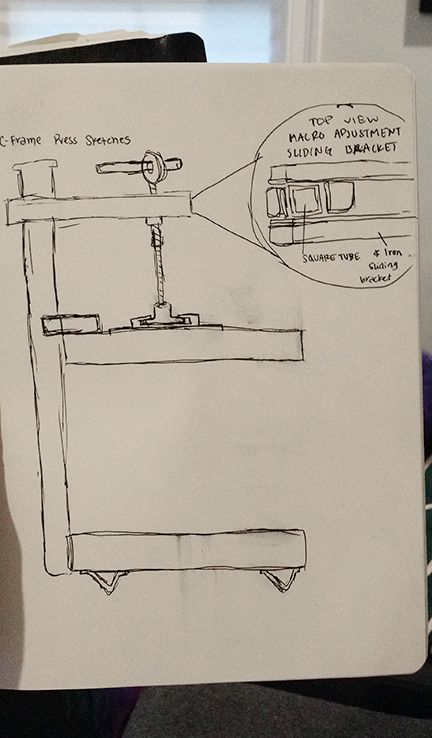 C-Frame Press Sketches
TOP VIEW
MACRO ADJUSTMENT
SLIDING BRACKET
SQUARE TUBE
Iron
sliding
bracket